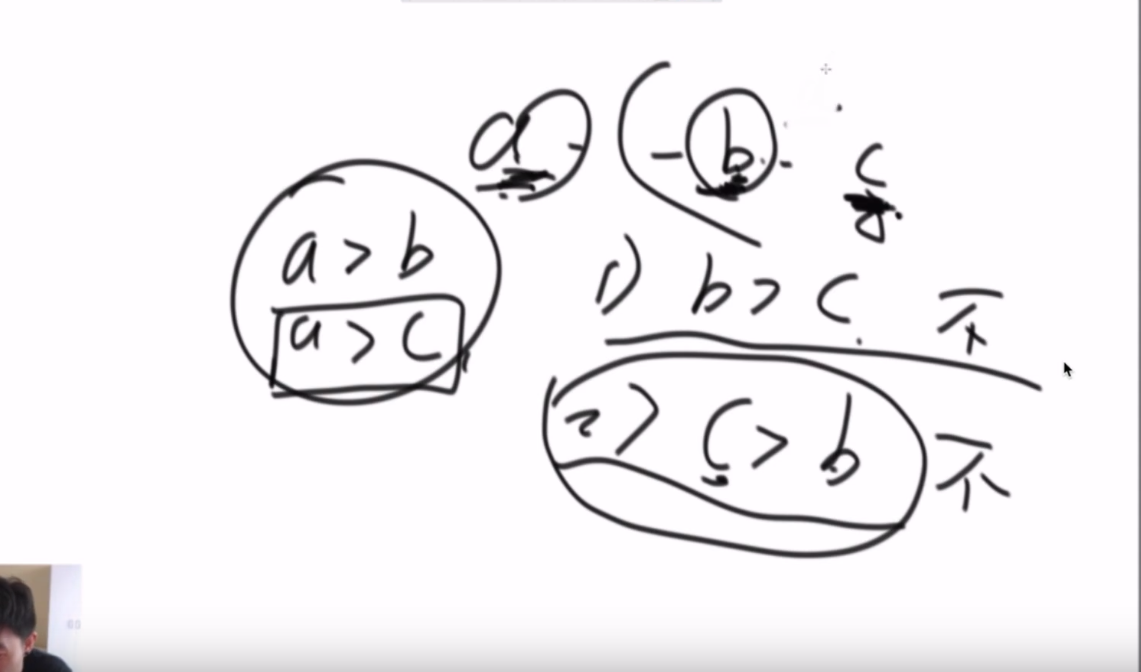 a - ( - b - c
a > b
a > c
1) b > c 不
2) c > b 不